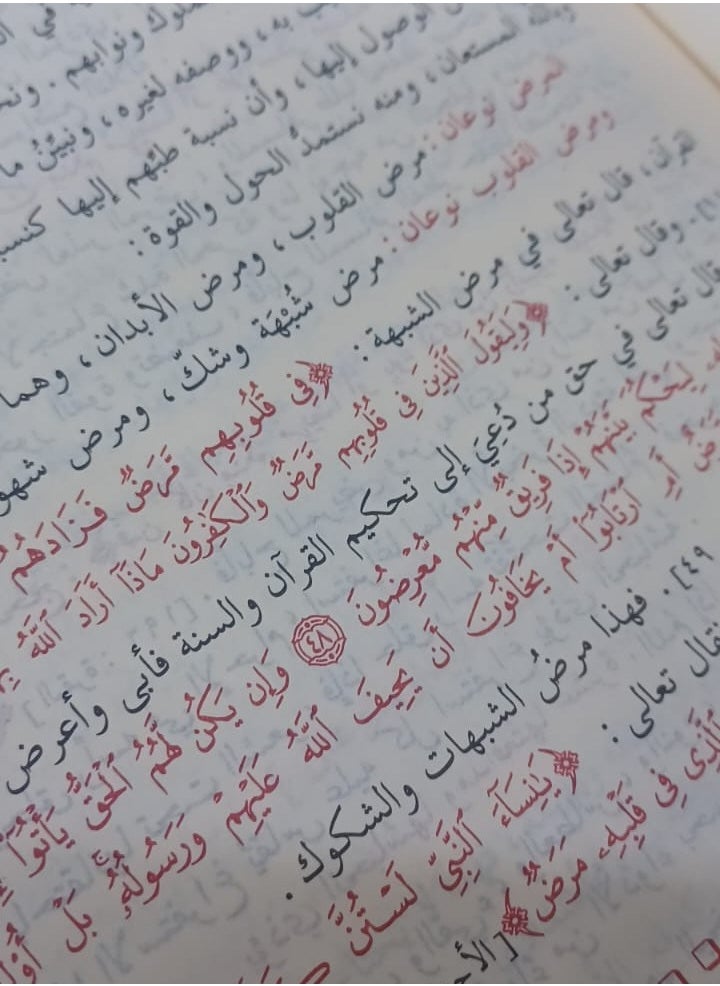 في
ملوك ونوابهم . ونحن
به ، ووصفه لغيره ، ونبيّنُ ما
الوصول إليها ، وأن نسبة طبّهم إليها كنسبة
المستعان ، ومنه نستمدُّ الحول والقوة :
المرض نوعان : مرض القلوب ، ومرض الأبدان ، وهما
ومرض القلوب نوعان : مرض شُبْهَة وشكّ ، ومرض شهوة
القرآن ، قال تعالى في مرض الشبهة : ﴿فِي قُلُوبِهِم مَّرَضٌ فَزَادَهُمُ
١]. وقال تعالى : ﴿وَلِيَقُولَ ٱلَّذِينَ فِي قُلُوبِهِم مَّرَضٌ وَٱلْكَٰفِرُونَ مَاذَآ أَرَادَ ٱللَّهُ
قال تعالى في حق من دُعِيَ إلى تحكيم القرآن والسنة فأبى وأعرض
لِيَحْكُمَ بَيْنَهُمْ إِذَا فَرِيقٌ مِّنْهُم مُّعْرِضُونَ ٤٨ وَإِن يَكُن لَّهُمُ ٱلْحَقُّ يَأْتُوٓا۟
مَّرَضٌ أَمِ ٱرْتَابُوٓا۟ أَمْ يَخَافُونَ أَن يَحِيفَ ٱللَّهُ عَلَيْهِمْ وَرَسُولُهُۥ بَلْ
٤٩]. فهذا مرضُ الشبهات والشكوك .
تعالى : ﴿يَٰنِسَآءَ ٱلنَّبِيِّ لَسْتُنَّ
ٱلَّذِى فِي قَلْبِهِۦ مَرَضٌ﴾ [